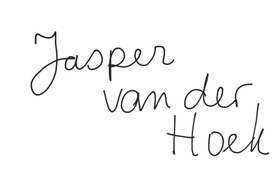 Jasper
van der
Hoek